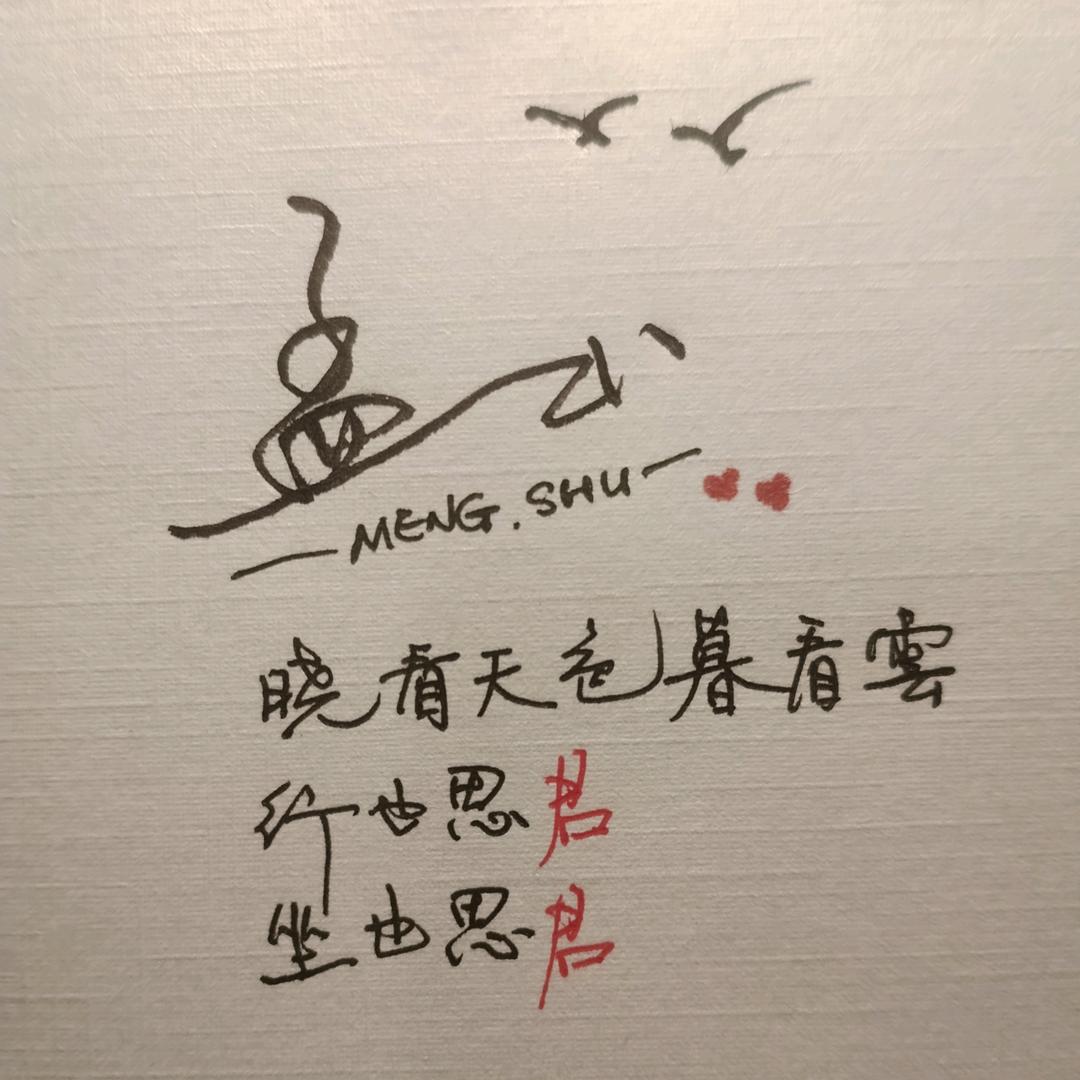 孟书
MENG.SHU
晓看天色暮看雲
行也思君
坐也思君